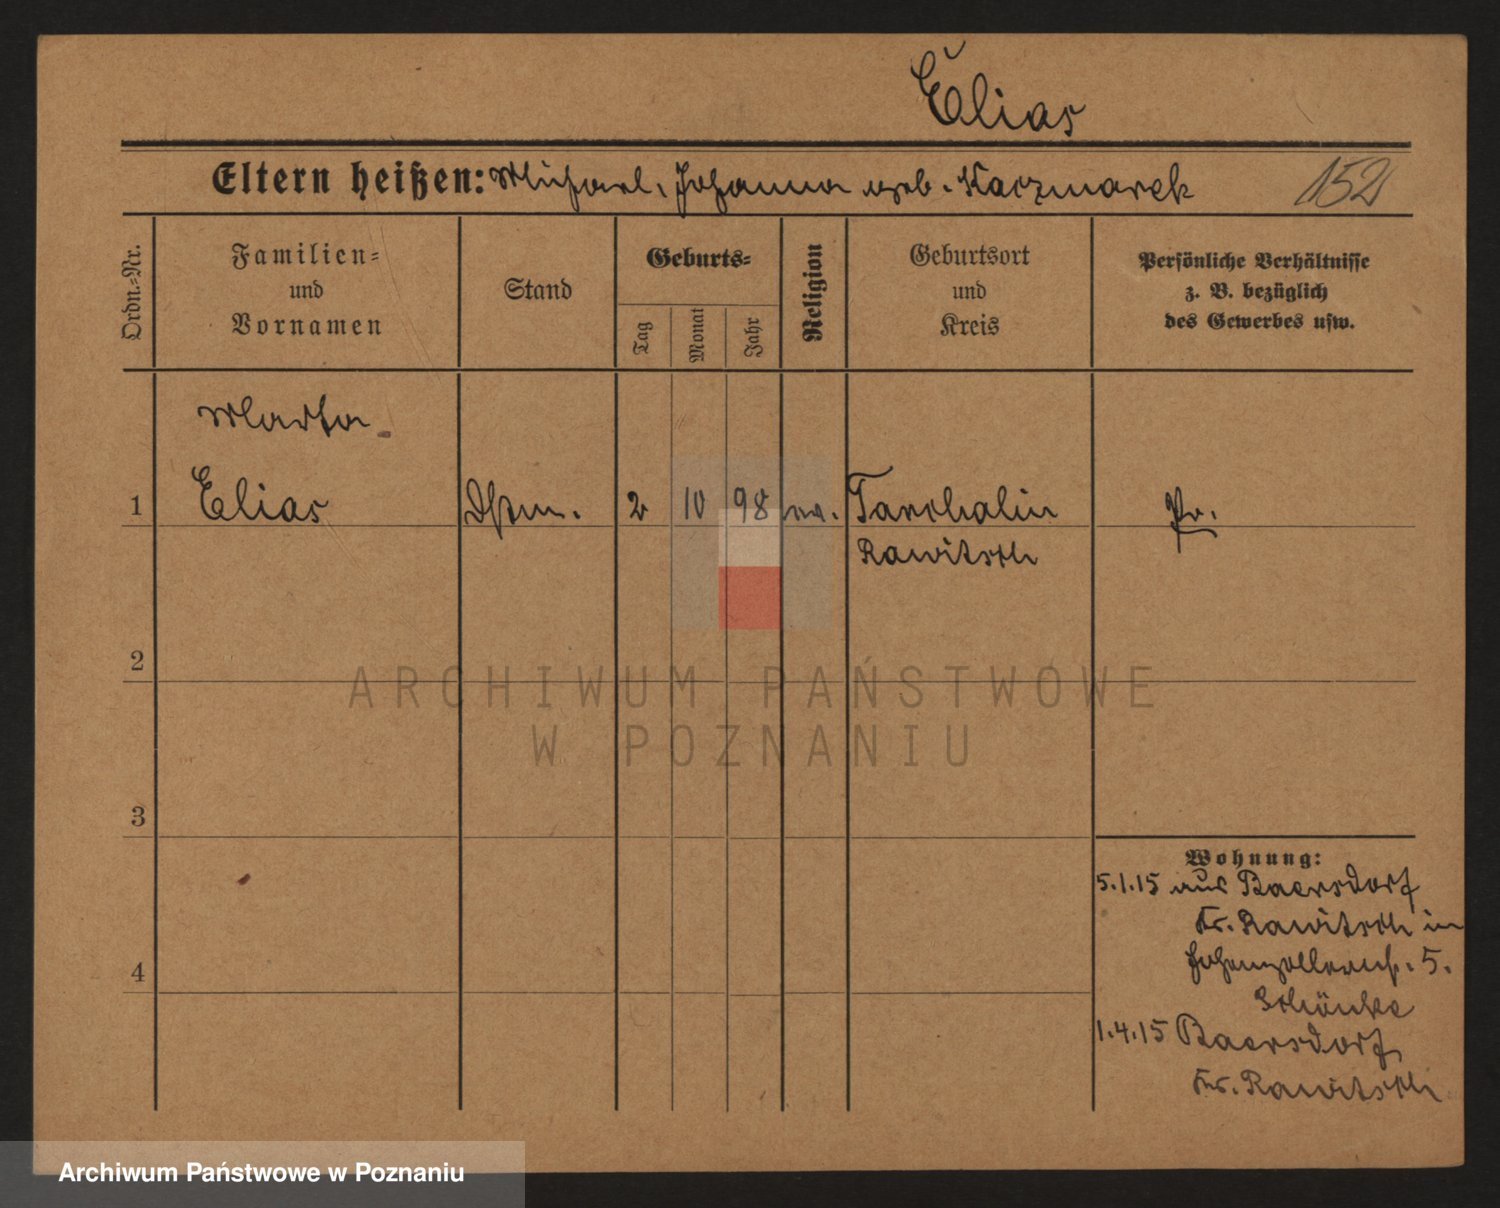 Elias
Eltern heißen: Michael, Johanna geb. Kaczmarek
152
Ordn.-Nr.
Familien-
und
Vornamen
Stand
Geburts-
Tag
Monat
Jahr
Religion
Geburtsort
und
Kreis
Persönliche Verhältnisse
z. B. bezüglich
des Gewerbes usw.
Marta
1 Elias Dstm. 2 10 98 ev. Tarchalin Pr.
Rawitsch
2
3
4
Wohnung:
5.1.15 aus Baersdorf
Kr. Rawitsch in
Hohenzollernst. 5.
Schönke
1.4.15 Baersdorf,
Kr. Rawitsch
ARCHIWUM PAŃSTWOWE
W POZNANIU
Archiwum Państwowe w Poznaniu